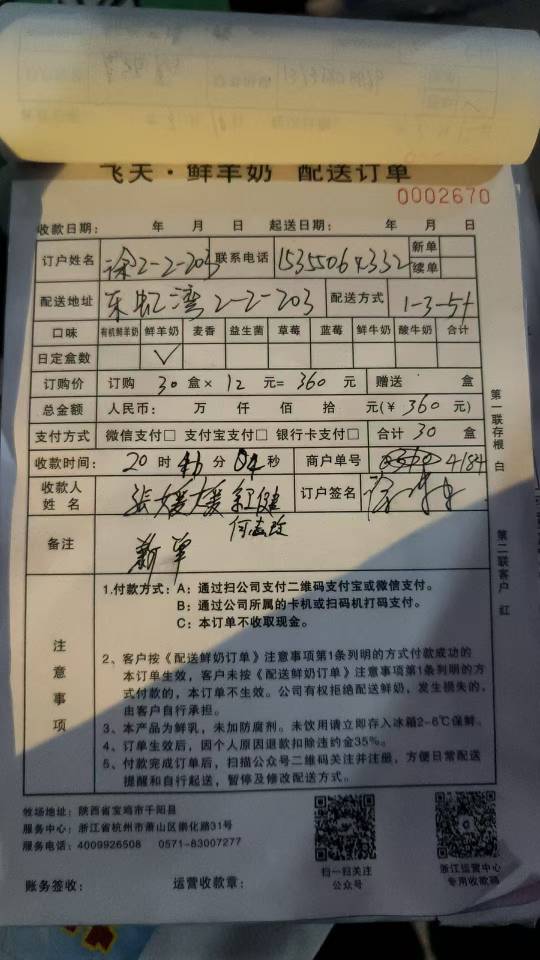 飞天·鲜羊奶 配送订单
0002670
收款日期： 年 月 日 起送日期： 年 月 日
订户姓名 徐2-2-203 联系电话 15355064332 新单
续单
配送地址 东虹湾2-2-203 配送方式 1-3-5+
口味 有机鲜羊奶 鲜羊奶 麦香 益生菌 草莓 蓝莓 鲜牛奶 酸牛奶 合计
日定盒数 ✓
订购价 订购 30 盒× 12 元= 360 元 赠送 盒
总金额 人民币： 万 仟 佰 拾 元(￥ 360 元)
支付方式 微信支付□ 支付宝支付□ 银行卡支付□ 合计 30 盒
收款时间： 20 时 分 04 秒 商户单号 4184
收款人姓名 张媛媛 订户签名
备注 新单
注意事项
1.付款方式：A：通过扫公司支付二维码支付宝或微信支付。
B：通过公司所属的卡机或扫码机打码支付。
C：本订单不收取现金。
2、客户按《配送鲜奶订单》注意事项第1条列明的方式付款成功的
本订单生效，客户未按《配送鲜奶订单》注意事项第1条列明的方
式付款的，本订单不生效。公司有权拒绝配送鲜奶，发生损失的，
由客户自行承担。
3、本产品为鲜乳，未加防腐剂。未饮用请立即存入冰箱2-6℃保鲜。
4、订单生效后，因个人原因退款扣除违约金35%。
5、付款完成订单后，扫描公众号二维码关注并注册，方便日常配送
提醒和自行起送，暂停及修改配送方式。
第一联存根 白
第二联客户 红
牧场地址：陕西省宝鸡市千阳县
服务中心：浙江省杭州市萧山区崇化路31号
服务电话：4009926508 0571-83007277
扫一扫关注
公众号
浙江运营中心
专用收款码
账务签收： 运营收款章：